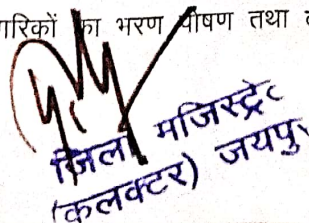 का भरण पोषण तथा
जिला मजिस्ट्रेट
(कलक्टर) जयपुर